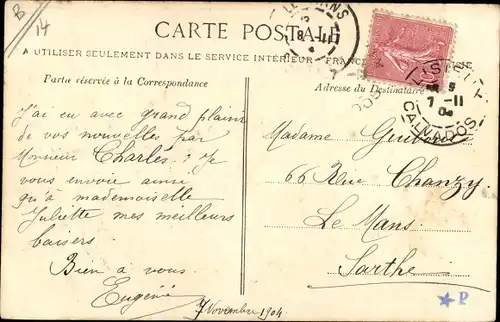 B/14
CARTE POSTALE
A UTILISER SEULEMENT DANS LE SERVICE INTÉRIEUR - FRANCE
Partie réservée à la Correspondance
Adresse du Destinataire
LISIEUX
7-11
04
CALVADOS
J'ai eu avec grand plaisir
de vos nouvelles par
Monsieur Charles. Je
vous envoie ainsi
qu'à mademoiselle
Juliette mes meilleurs
baisers
Bien à vous
Eugénie
7 Novembre 1904
Madame
66 Rue Chanzy
Le Mans
Sarthe
P